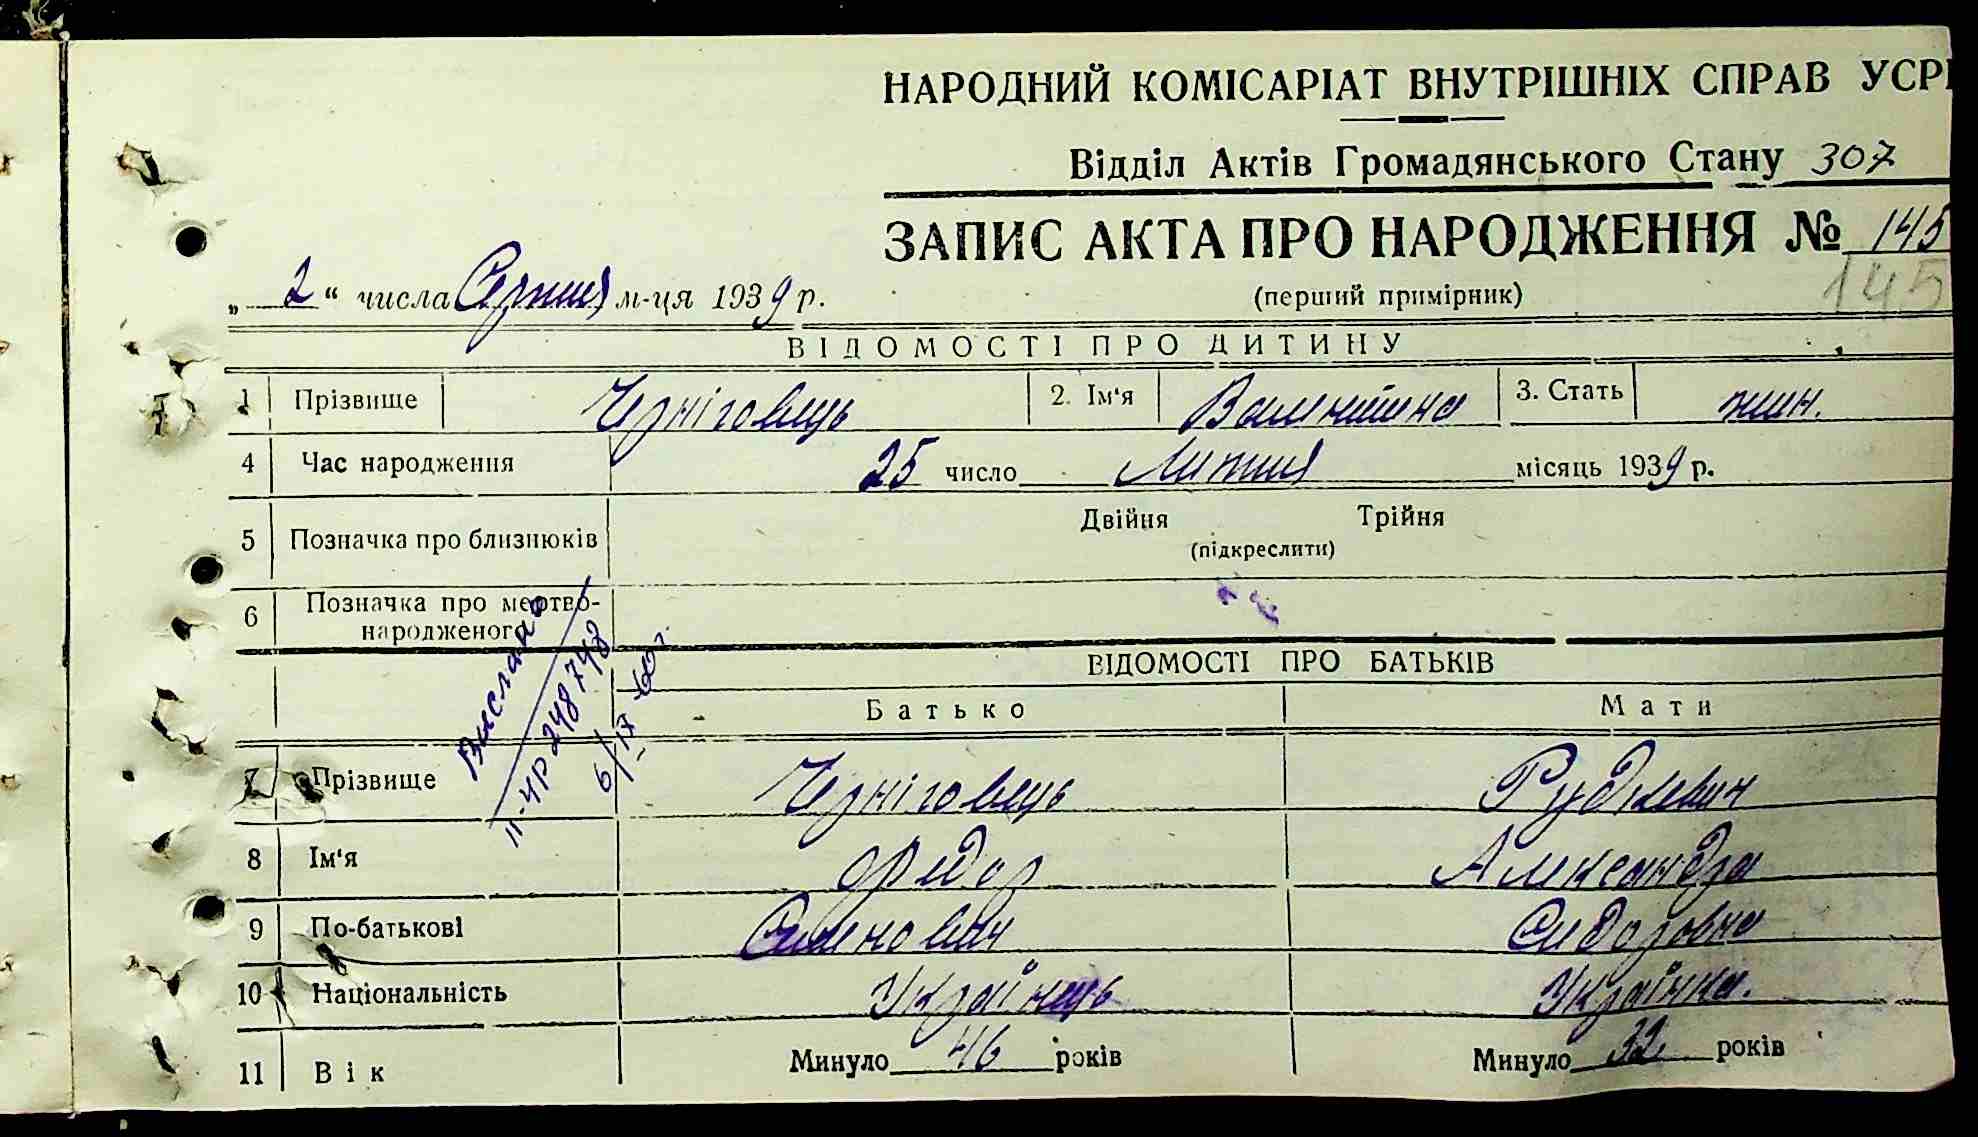 НАРОДНИЙ КОМІСАРІАТ ВНУТРІШНІХ СПРАВ УСРР
Відділ Актів Громадянського Стану 307
ЗАПИС АКТА ПРО НАРОДЖЕННЯ № 145
„ 2 “ числа Серпня м-ця 1939 р. (перший примірник) 145
ВІДОМОСТІ ПРО ДИТИНУ
1 Прізвище Черніговець 2. Ім'я Валентина 3. Стать жін.
4 Час народження 25 число Липня місяць 1939 р.
5 Позначка про близнюків Двійня Трійня
(підкреслити)
6 Позначка про мертво-
народженого
ВІДОМОСТІ ПРО БАТЬКІВ
Батько Мати
Выслано
II-УР 248748
6/IX-60г
7 Прізвище Черніговець Рудкевич
8 Ім'я Федор Александра
9 По-батькові Семенович Сидоровна
10 Національність Українець Українка.
11 Вік Минуло 46 років Минуло 32 років